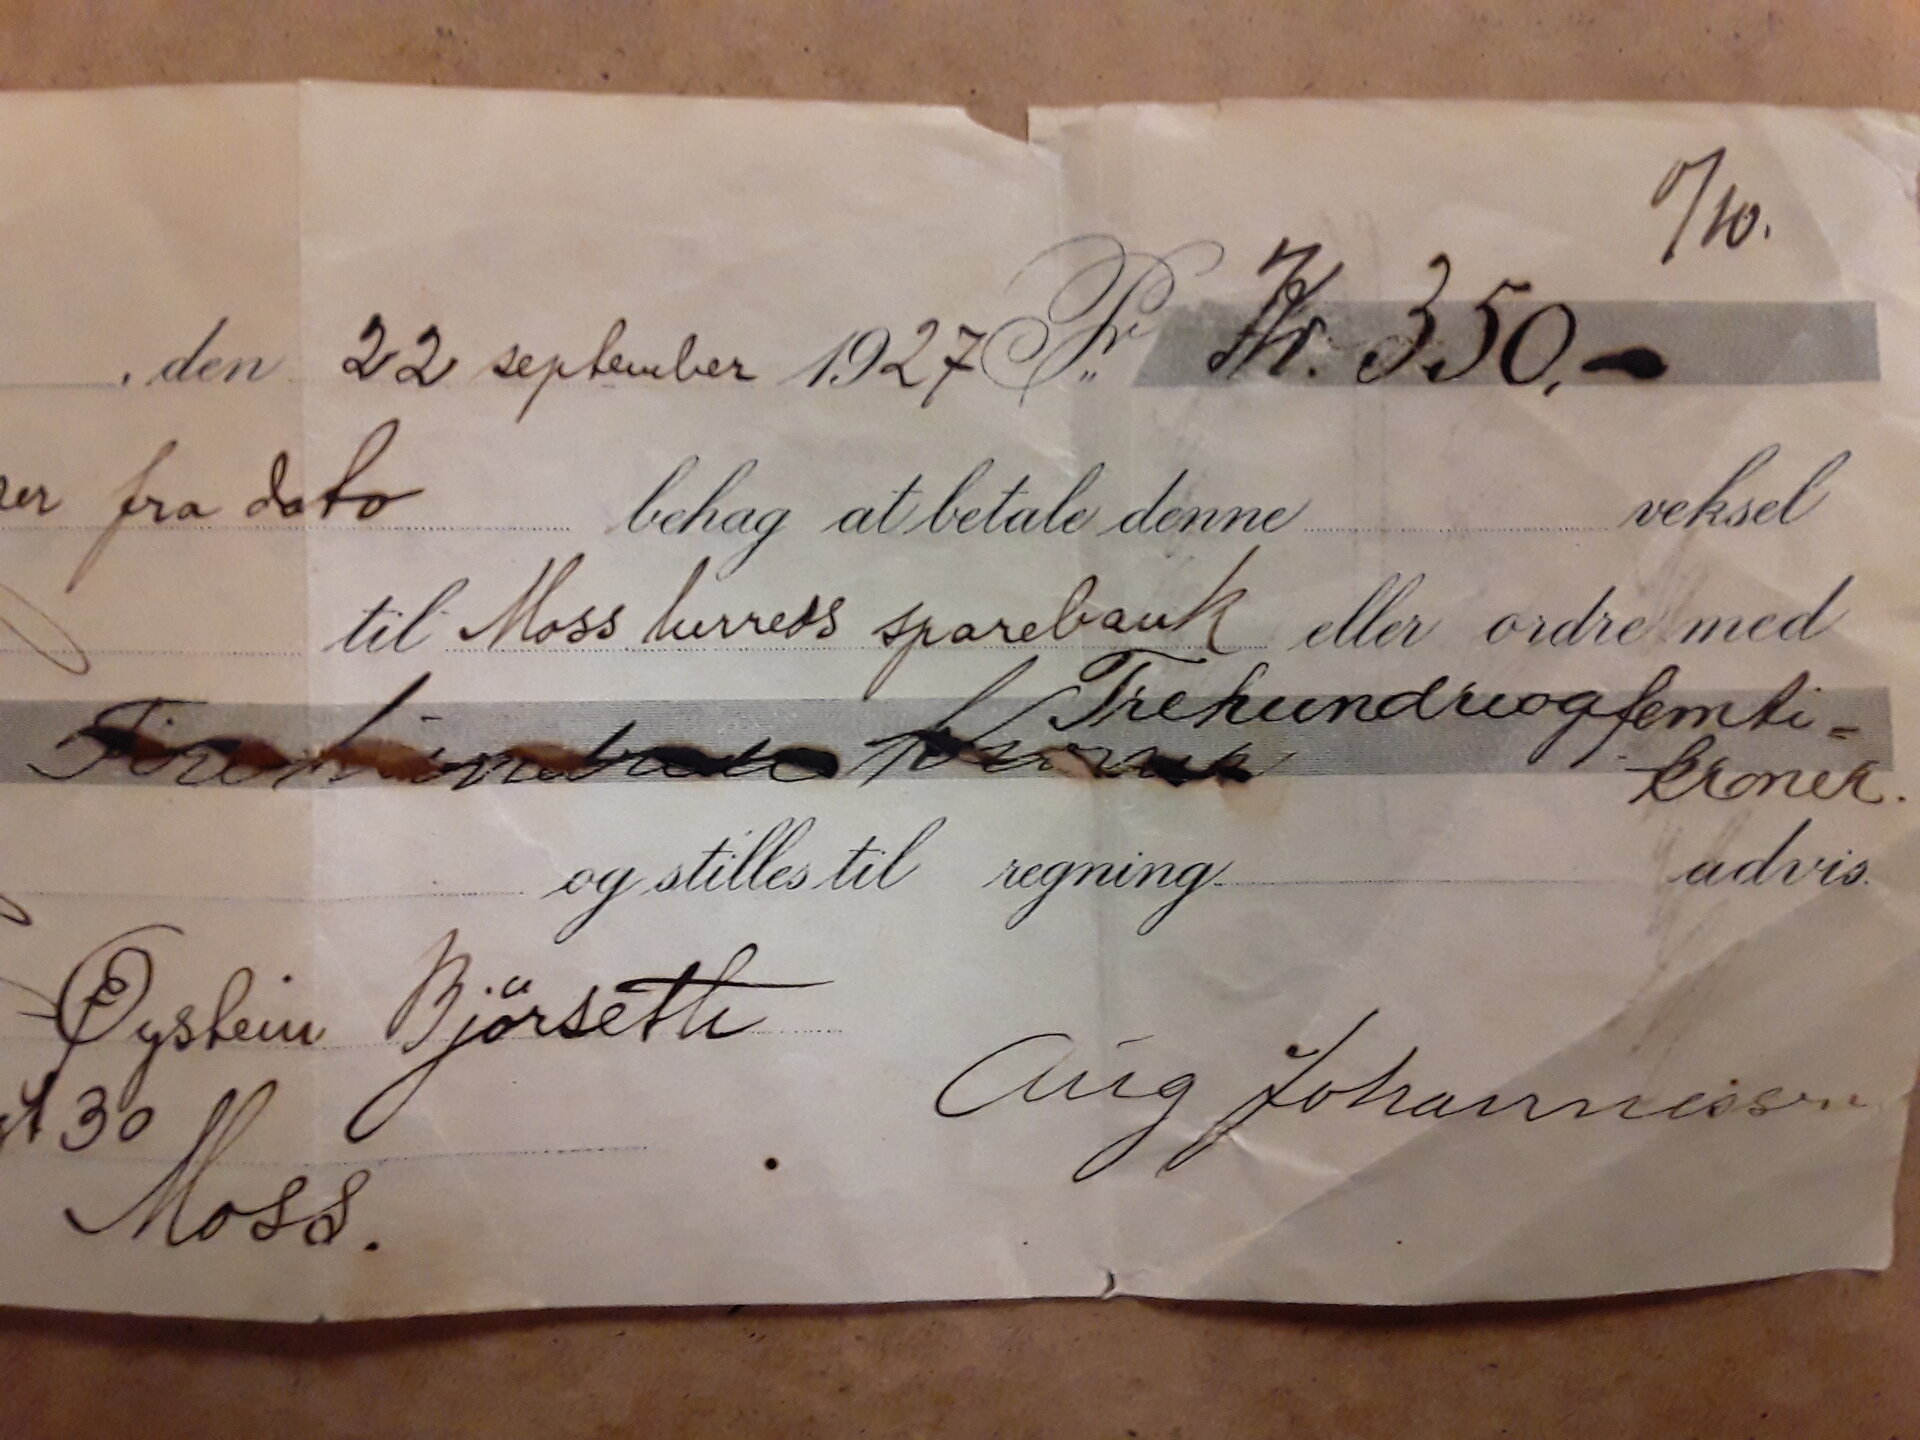 /10.
, den 22 september 1927 Pr. Kr. 350,-
fra dato behag at betale denne veksel
til Moss herreds sparebank eller ordre med
Trehundreogfemti-
Firehundrede kroner
kroner.
og stilles til regning advis.
Øystein Bjørseth
Aug Johannessen
30
Moss.